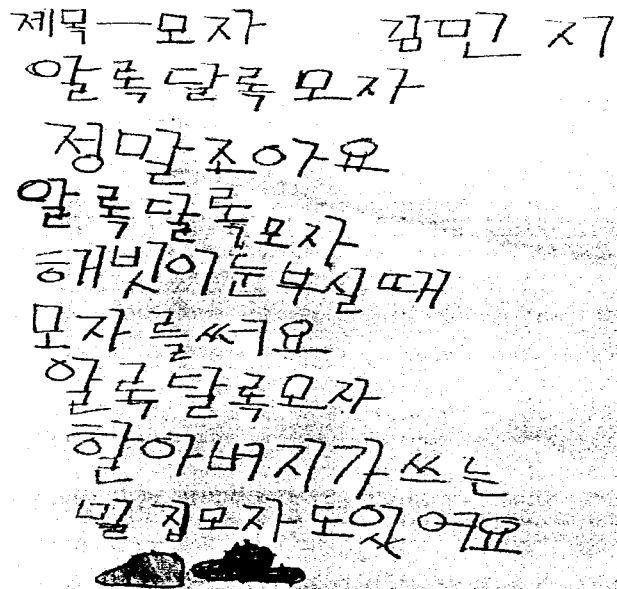 제목—모자 김민지
알록달록모자
정말조아요
알록달록모자
해빗이눈부실때
모자를써요
알록달록모자
할아버지가쓰는
밀집모자도있어요